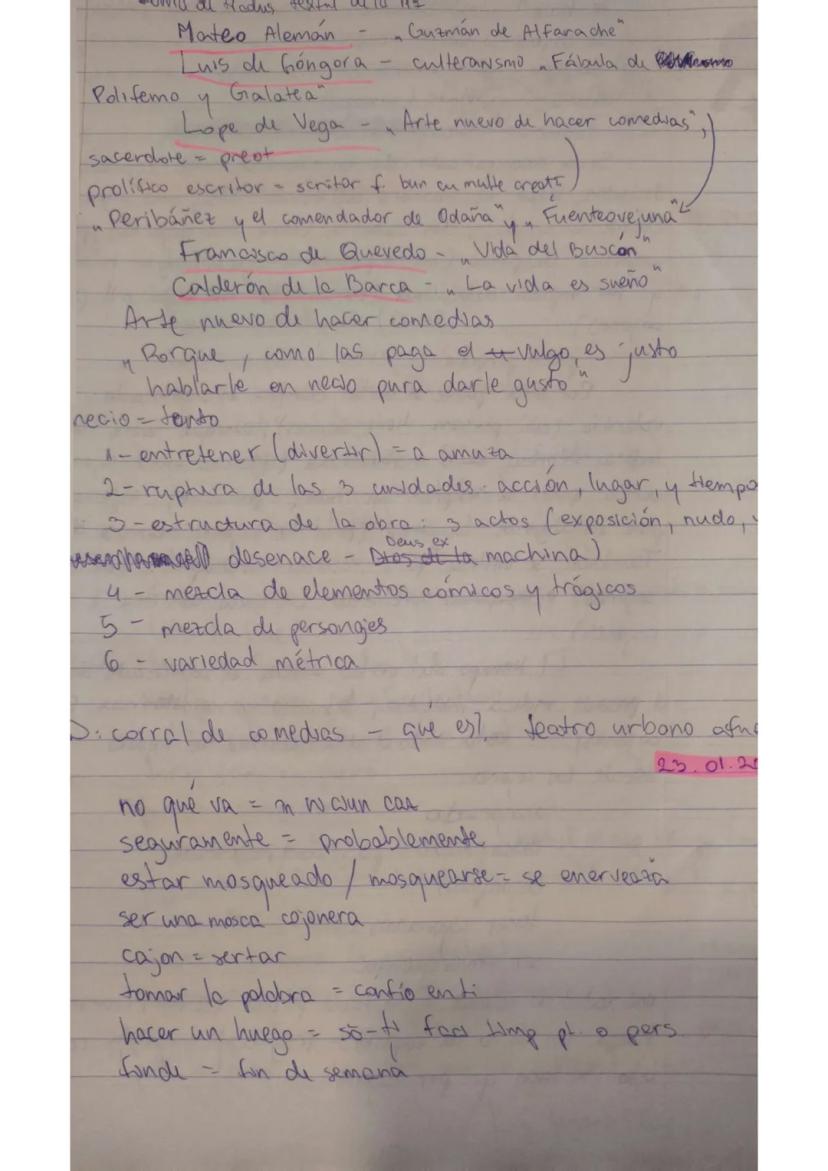 Mateo Alemán - „Guzmán de Alfarache"
Luis de Góngora - culteranismo „Fábula de
Polifemo y Galatea"
Lope de Vega - „Arte nuevo de hacer comedias",
sacerdote = preot
prolífico escritor = scriitor f. bun cu multe creații
„Peribáñez y el comendador de Odaña" y „Fuenteovejuna"
Francisco de Quevedo - „Vida del Buscón"
Calderón de la Barca - „La vida es sueño"
Arte nuevo de hacer comedias
„Porque, como las paga el vulgo, es justo
hablarle en necio para darle gusto"
necio = tonto
1- entretener (divertir) = a amuza
2- ruptura de las 3 unidades: acción, lugar, y tiempo
3- estructura de la obra: 3 actos (exposición, nudo, y
desenace - Deus ex machina)
4 - mezcla de elementos cómicos y trágicos
5 - mezcla de personajes
6 - variedad métrica
D: corral de comedias - qué es?, teatro urbano
23.01.2
no qué va = în niciun caz
seguramente = probablemente
estar mosqueado / mosquearse = se enervează
ser una mosca cojonera
cajon = sertar
tomar la palabra = confío en ti
hacer un huego = să-ți faci timp pt. o pers
finde = fin de semana